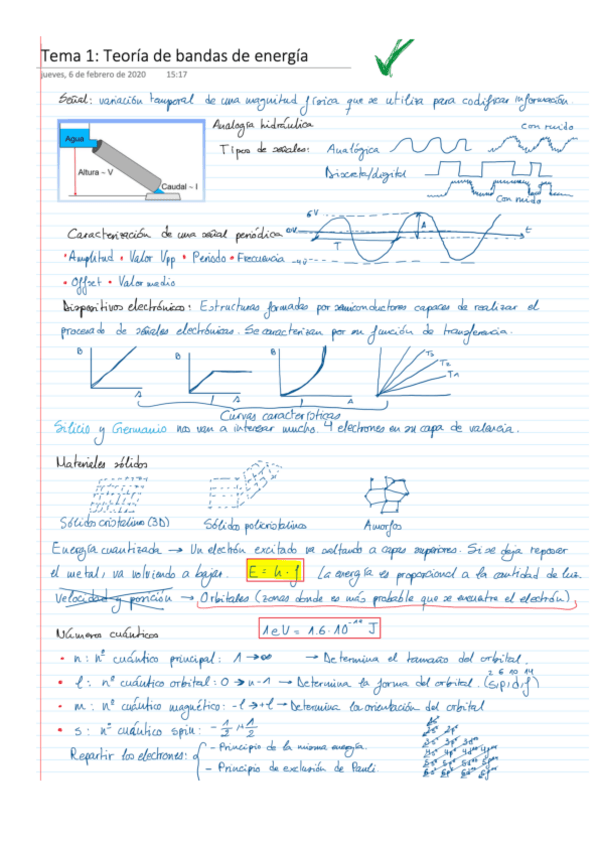 Tema 1: Teoría de bandas de energía
jueves, 6 de febrero de 2020 15:17
Señal: variación temporal de una magnitud física que se utiliza para codificar información.
Analogía hidráulica
Agua
Altura ~ V
Caudal ~ I
Tipos de señales: Analógica
con ruido
Discreta/digital
Con ruido
Caracterización de una señal periódica
6V
0V
-4V
T
A
t
• Amplitud • Valor Vpp • Periodo • Frecuencia
• Offset • Valor medio
Dispositivos electrónicos: Estructuras formadas por semiconductores capaces de realizar el
procesado de señales electrónicas. Se caracterizan por su función de transferencia.
B
A
B
A
B
A
T3
T2
T1
Curvas características
Silicio y Germanio nos van a interesar mucho. 4 electrones en su capa de valencia.
Materiales sólidos
Sólidos cristalino (3D) Sólidos policristalinos Amorfos
Energía cuantizada → Un electrón excitado va saltando a capas superiores. Si se deja reposar
el metal, va volviendo a bajar. E = h · f La energía es proporcional a la cantidad de luz.
Velocidad y posición → Orbitales (zonas donde es más probable que se encuentre el electrón).
Números cuánticos
1eV = 1.6·10⁻¹⁹ J
• n: nº cuántico principal: 1 → ∞ → Determina el tamaño del orbital.
• l: nº cuántico orbital: 0 → n-1 → Determina la forma del orbital. (s,p,d,f)
2 6 10 14
• m: nº cuántico magnético: -l → +l → Determina la orientación del orbital
• s: nº cuántico spin: -1/2, +1/2
Repartir los electrones:
- Principio de la misma energía.
- Principio de exclusión de Pauli.